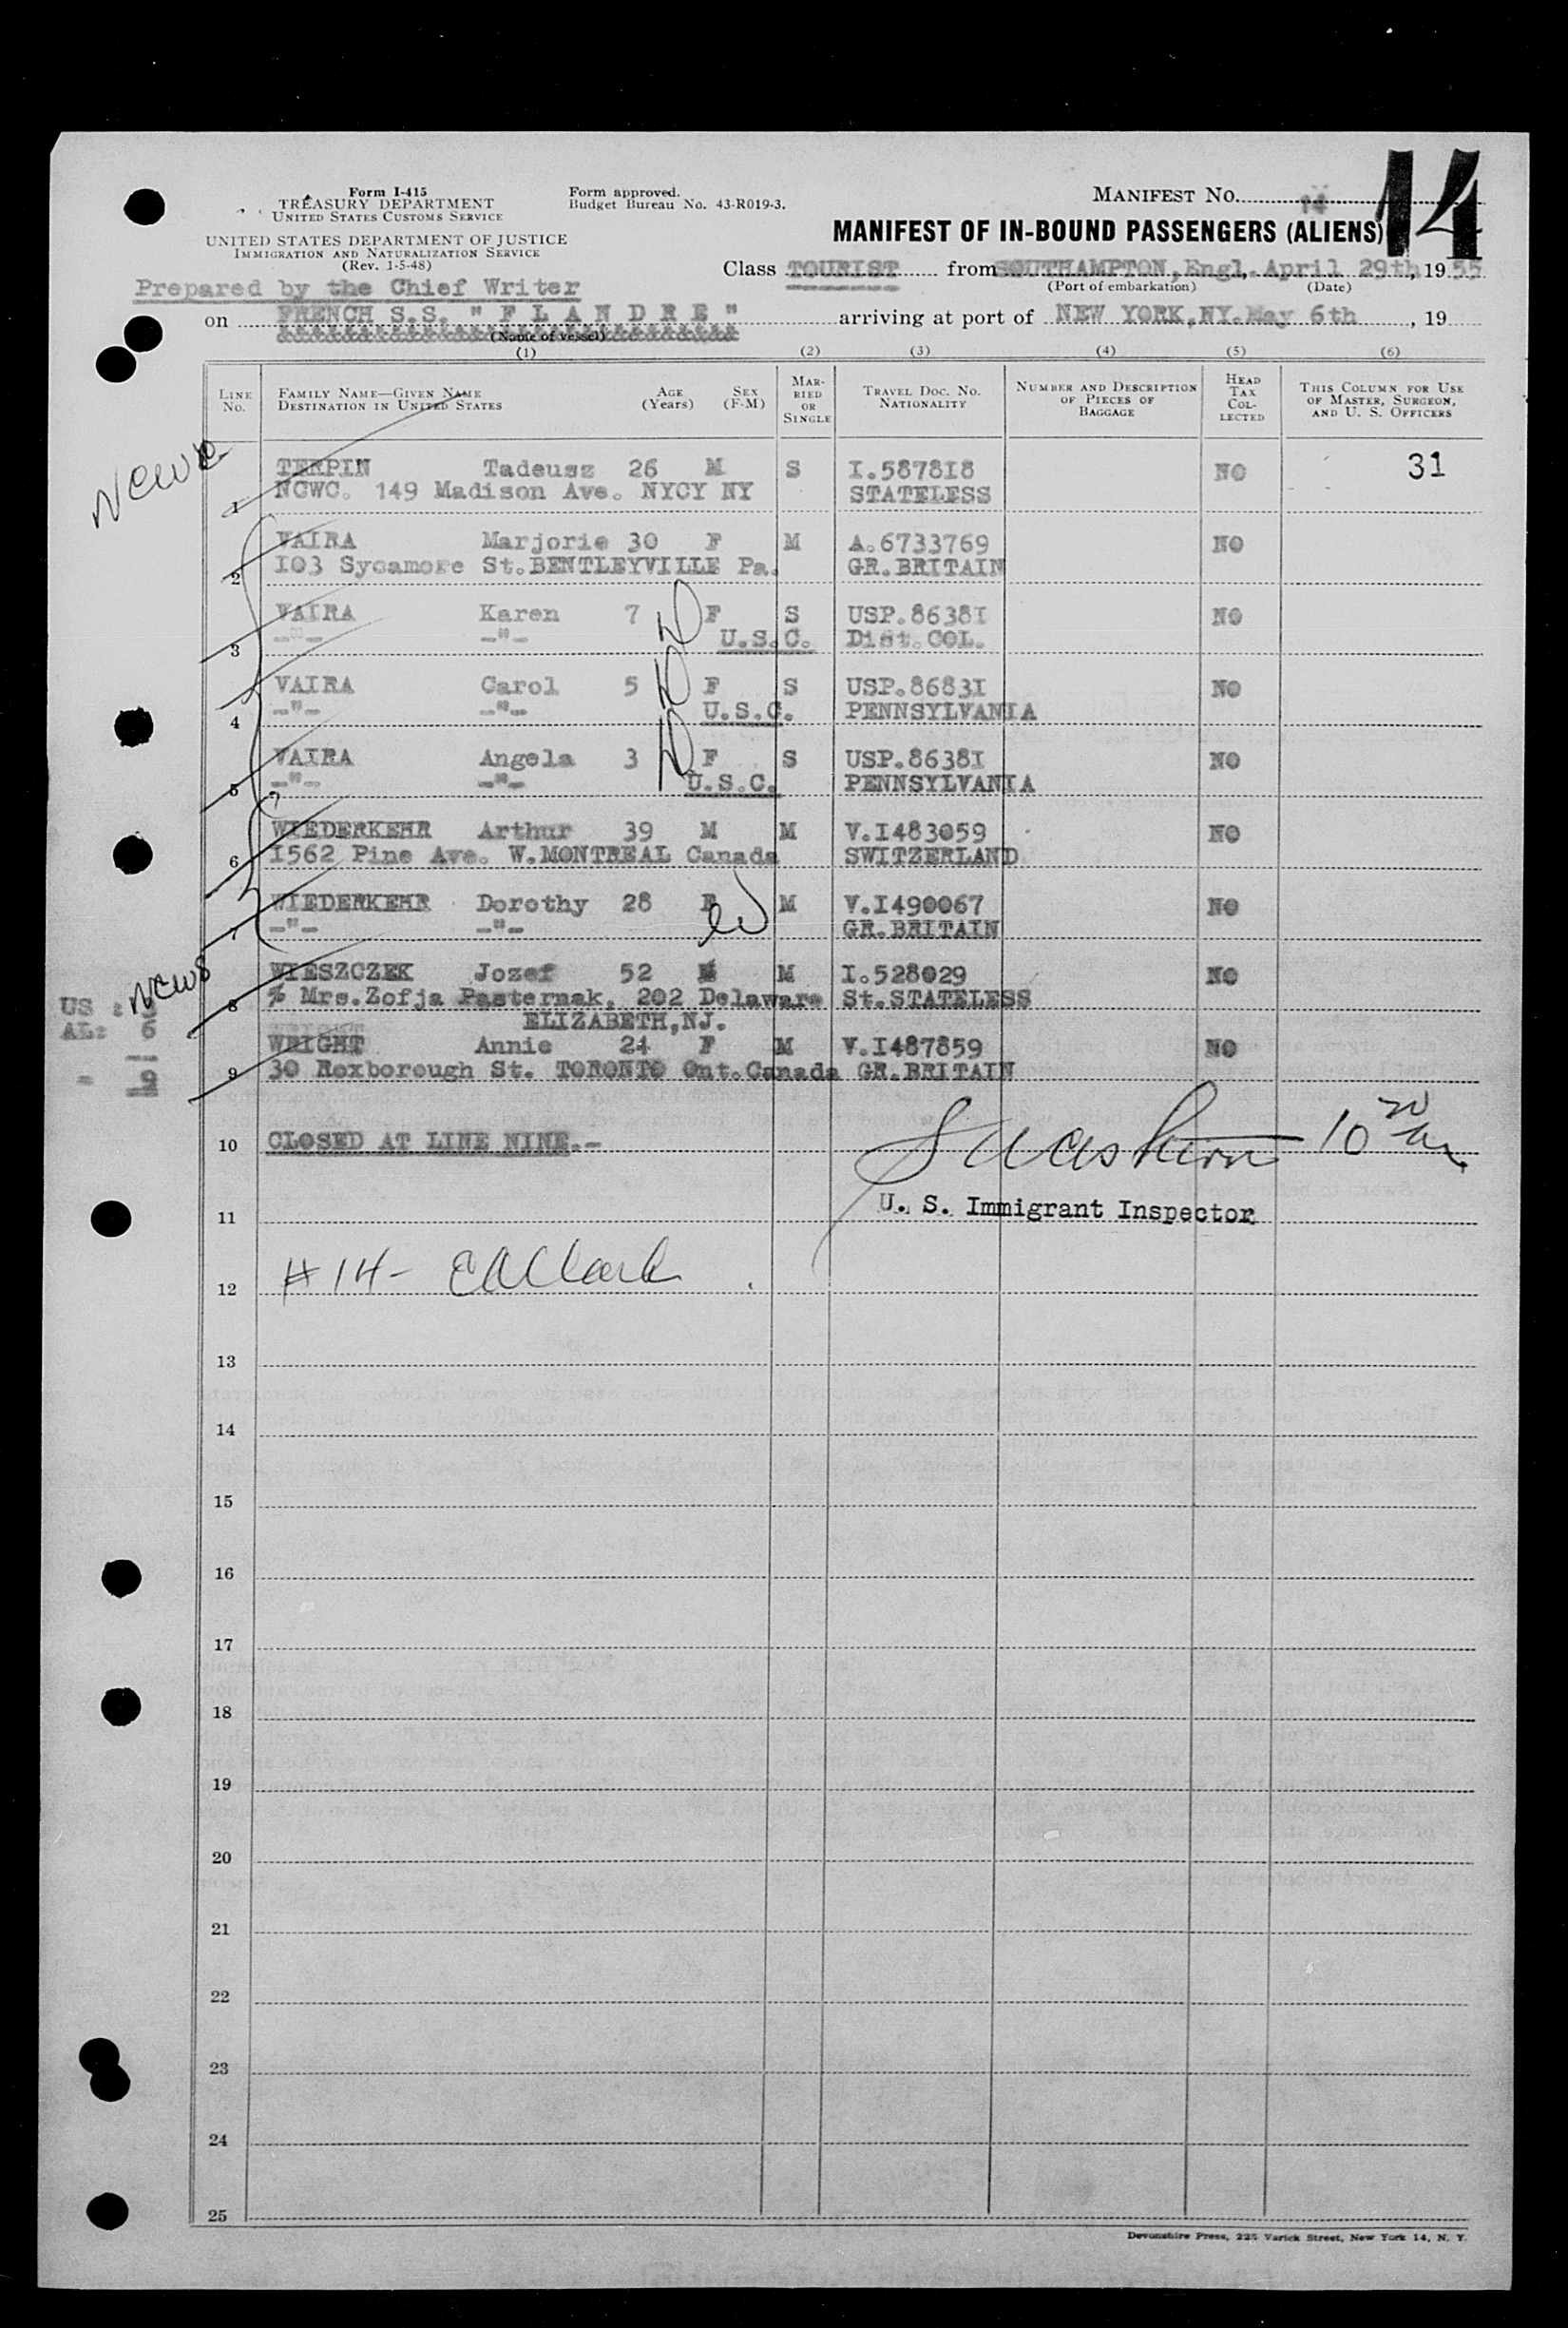 Form I-415
TREASURY DEPARTMENT
UNITED STATES CUSTOMS SERVICE
UNITED STATES DEPARTMENT OF JUSTICE
IMMIGRATION AND NATURALIZATION SERVICE
(Rev. 1-5-48)
Form approved.
Budget Bureau No. 43-R019-3.
MANIFEST NO. 14
14
MANIFEST OF IN-BOUND PASSENGERS (ALIENS)
Class TOURIST from SOUTHAMPTON, Engl. April 29th, 19 55
(Port of embarkation) (Date)
Prepared by the Chief Writer
on FRENCH S.S. " F L A N D R E " arriving at port of NEW YORK,NY. May 6th, 19
(Name of vessel)
(1) (2) (3) (4) (5) (6)
LINE No. FAMILY NAME—GIVEN NAME DESTINATION IN UNITED STATES AGE (Years) SEX (F-M) MARRIED OR SINGLE TRAVEL DOC. NO. NATIONALITY NUMBER AND DESCRIPTION OF PIECES OF BAGGAGE HEAD TAX COLLECTED THIS COLUMN FOR USE OF MASTER, SURGEON, AND U. S. OFFICERS
NCWC
TERPIN Tadeusz 26 M S I.587818 NO 31
1 NCWC. 149 Madison Ave. NYCY NY STATELESS
VAIRA Marjorie 30 F M A.6733769 NO
2 I03 Sycamore St.BENTLEYVILLE Pa. GR.BRITAIN
VAIRA Karen 7 F S USP.8638I NO
3 -"- -"- U.S.C. Dist.COL.
VAIRA Carol 5 F S USP.8683I NO
4 -"- -"- U.S.C. PENNSYLVANIA
VAIRA Angela 3 F S USP.8638I NO
5 -"- -"- U.S.C. PENNSYLVANIA
WIEDERKEHR Arthur 39 M M V.I483059 NO
6 I562 Pine Ave. W.MONTREAL Canada SWITZERLAND
WIEDERKEHR Dorothy 28 F M V.I490067 NO
7 -"- -"- GR.BRITAIN
WIESZCZEK Jozef 52 M M I.528029 NO
8 % Mrs.Zofja Pasternak, 202 Delaware St.STATELESS
ELIZABETH,NJ.
US : 3
AL: 6
= 9
WRIGHT Annie 24 F M V.I487859 NO
9 30 Roxborough St. TORONTO Ont.Canada GR.BRITAIN
10 CLOSED AT LINE NINE.-
10
11 U. S. Immigrant Inspector
12 #14-
13
14
15
16
17
18
19
20
21
22
23
24
25
Devonshire Press, 225 Varick Street, New York 14, N. Y.